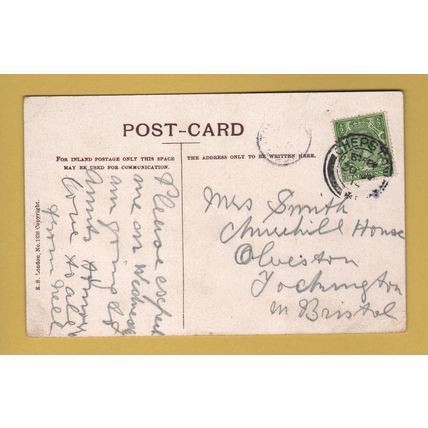 POST-CARD
FOR INLAND POSTAGE ONLY THIS SPACE
MAY BE USED FOR COMMUNICATION.
THE ADDRESS ONLY TO BE WRITTEN HERE.
Please expect
me on Wednesday
am going to
Annies
love to all
from
Mrs Smith
House
Olveston
Tockington
Nr Bristol
CHEPST
E.S. London, No. Copyright.